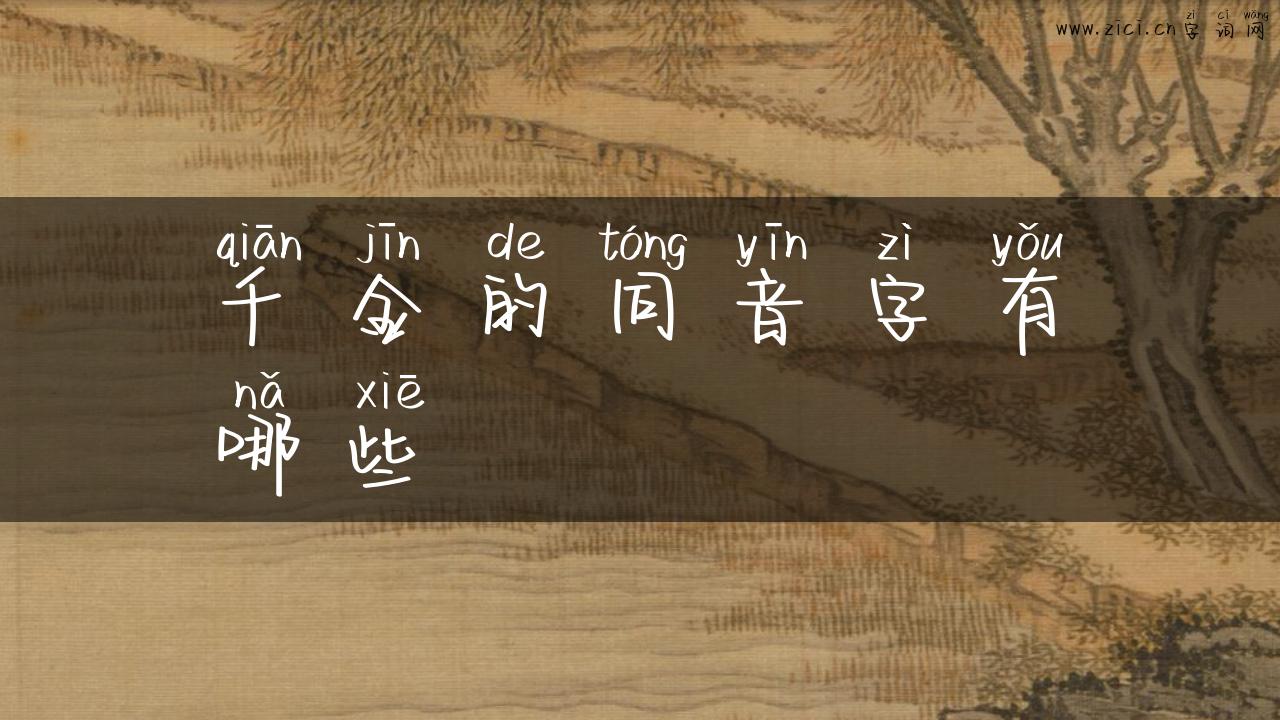 zì cí wǎng
www.zici.cn字词网
qiān jīn de tóng yīn zì yǒu
千金的同音字有
nǎ xiē
哪些